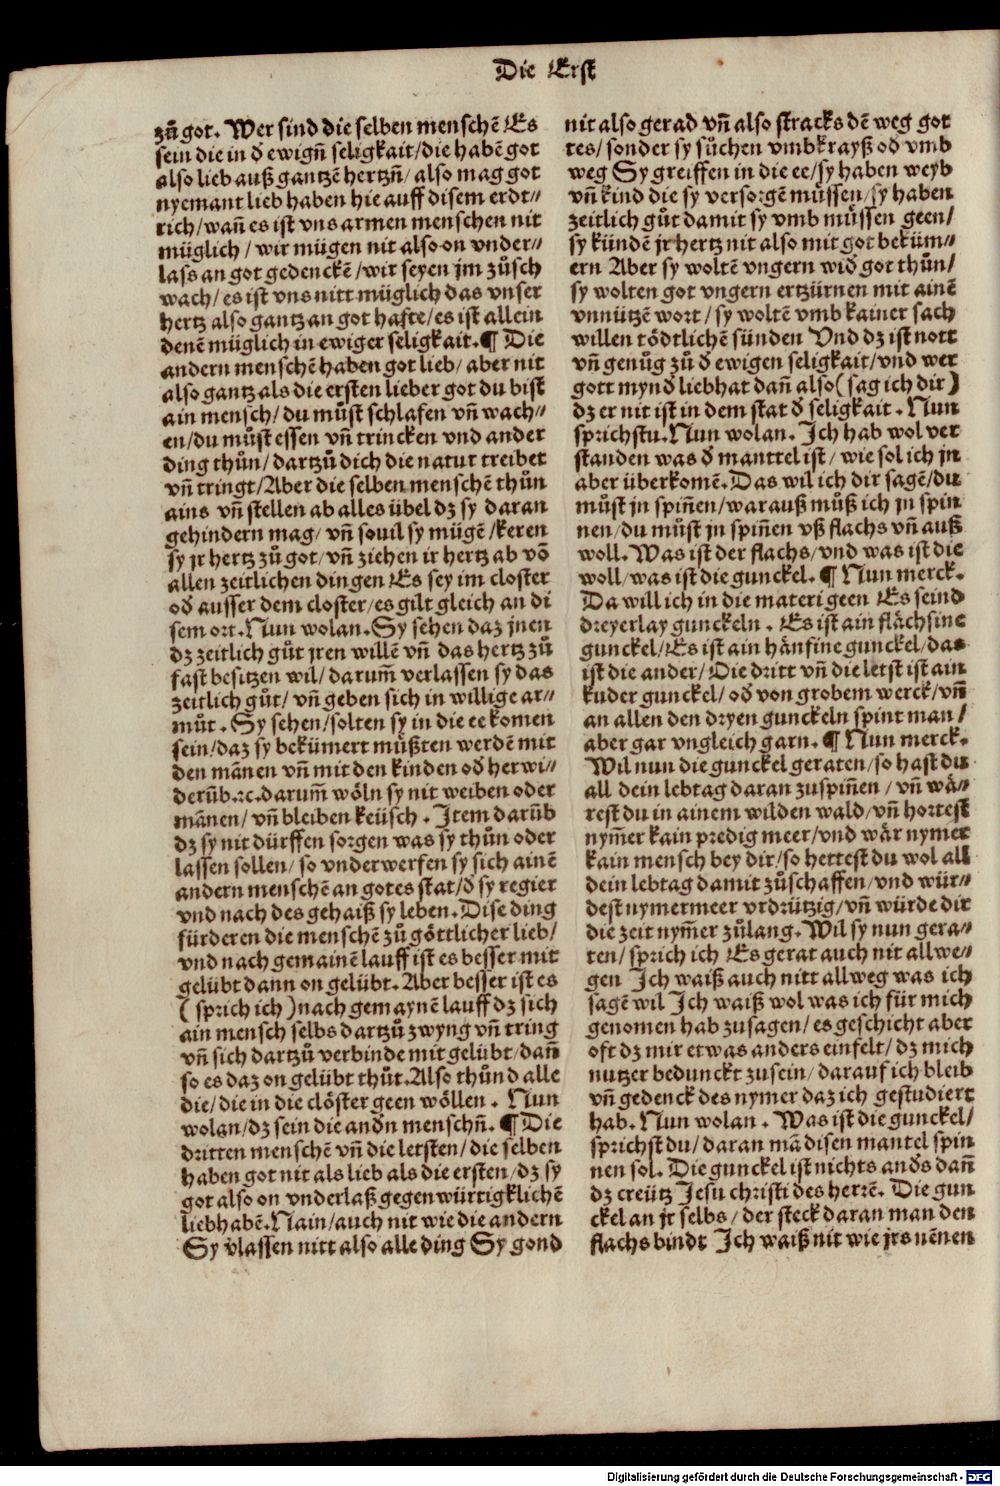 Die Erst
zů got. Wer sind die selben menschē Es
sein die in d̕ ewigñ seligkait/die habē got
also lieb auß gantzē hertzñ/also mag got
nyemant lieb haben hie auff disem erdt⸗
rich/wañ es ist vns armen menschen nit
müglich/wir mügen nit also on vnder⸗
lass an got gedenckē/wir seyen jm zůsch
wach/es ist vns nitt müglich das vnser
hertz also gantz an got hafte/es ist allein
denē müglich in ewiger seligkait.¶ Die
andern menschē haben got lieb/aber nit
also gantz als die ersten lieber got du bist
ain mensch/du můst schlafen vñ wach⸗
en/du můst essen vñ trincken vnd ander
ding thůn/dartzů dich die natur treibet
vñ tringt/Aber die selben menschē thůn
ains vñ stellen ab alles übel dz sy daran
gehindern mag/vñ souil sy mügē/keren
sy jr hertz zů got/vñ ziehen ir hertz ab vō
allen zeitlichen dingen Es sey im closter
od̕ ausser dem closter/es gilt gleich an di
sem ort. Nun wolan. Sy sehen daz jnen
dz zeitlich gůt jren willē vñ das hertz zů
fast besitzen wil/darum̄ verlassen sy das
zeitlich gůt/vñ geben sich in willige ar⸗
můt. Sy sehen/solten sy in die ee komen
sein/daz sy bekümert můßten werdē mit
den mānen vñ mit den kinden od̕ her wi⸗
derüb.⁊c.darum̄ wöln sy nit weiben oder
mānen/vñ bleiben keüsch. Item darüb
dz sy nit dürffen sorgen was sy thůn oder
lassen sollen/so vnderwerfen sy sich ainē
andern menschē an gotes stat/d̕ sy regier
vnd nach des gehaiß sy leben. Dise ding
fürderen die menschē zů göttlicher lieb/
vnd nach gemainē lauff ist es besser mit
gelübt dann on gelübt. Aber besser ist es
(sprich ich)nach gemaynē lauff dz sich
ain mensch selbs dartzů zwyng vñ tring
vñ sich dartzů verbinde mit gelübt/dañ
so es daz on gelübt thůt. Also thůnd alle
die/die in die clöster geen wöllen. Nun
wolan/dz sein die and̕n menschñ.¶ Die
dritten menschē vñ die letsten/die selben
haben got nit als lieb als die ersten/dz sy
got also on vnderlaß gegenwürtigklichē
liebhabē. Nain/auch nit wie die andern
Sy v̕lassen nitt also alle ding Sy gond
nit also gerad vñ also stracks dē weg got
tes/sonder sy sůchen vmbkrayß od̕ vmb
weg Sy greiffen in die ee/sy haben weyb
vñ kind die sy versorgē müssen/sy haben
zeitlich gůt damit sy vmb můssen geen/
sy kündē jr hertz nit also mit got beküm⸗
ern Aber sy woltē vngern wid̕ got thůn/
sy wolten got vngern ertzürnen mit ainē
vnnützē wort/sy woltē vmb kainer sach
willen tödtlichē sünden Vnd dz ist nott
vñ genůg zů d̕ ewigen seligkait/vnd wer
gott mynd̕ liebhat dañ also(sag ich dir)
dz er nit ist in dem stat d̕ seligkait. Nun
sprichstu. Nun wolan. Ich hab wol ver
standen was d̕ manttel ist/wie sol ich jn
aber überkomē. Das wil ich dir sagē/du
můst jn spiñen/warauß můß ich jn spin
nen/du můst jn spiñen vß flachs vñ auß
woll. Was ist der flachs/vnd was ist die
woll/was ist die gunckel.¶ Nun merck.
Da will ich in die materi geen Es seind
dreyerlay gunckeln. Es ist ain flächsine
gunckel/Es ist ain hänfine gunckel/das
ist die ander/Die dritt vñ die letst ist ain
kuder gunckel/od̕ von grobem werck/vñ
an allen den dryen gunckeln spint man/
aber gar vngleich garn.¶ Nun merck.
Wil nun die gunckel geraten/so hast du
all dein lebtag daran zuspiñen/vñ wä⸗
rest du in ainem wilden wald/vñ hortest
nym̄er kain predig meer/vnd wär nymer
kain mensch bey dir/so hettest du wol all
dein lebtag damit zůschaffen/vnd wür⸗
dest nymermeer vrdrützig/vñ würde dir
die zeit nym̄er zůlang. Wil sy nun gera⸗
ten/sprich ich Es gerat auch nit allwe⸗
gen Ich waiß auch nitt allweg was ich
sagē wil Ich waiß wol was ich für mich
genomen hab zusagen/es geschicht aber
oft dz mir etwas anders einfelt/dz mich
nutzer bedunckt zusein/darauf ich bleib
vñ gedenck des nymer daz ich gestudiert
hab. Nun wolan. Was ist die gunckel/
sprichst du/daran mā disen mantel spin
nen sol. Die gunckel ist nichts and̕s dañ
dz creütz Jesu christi des herrē. Die gun
ckel an jr selbs/der steck daran man den
flachs bindt Ich waiß nit wie jrs nēnen
Digitalisierung gefördert durch die Deutsche Forschungsgemeinschaft - DFG